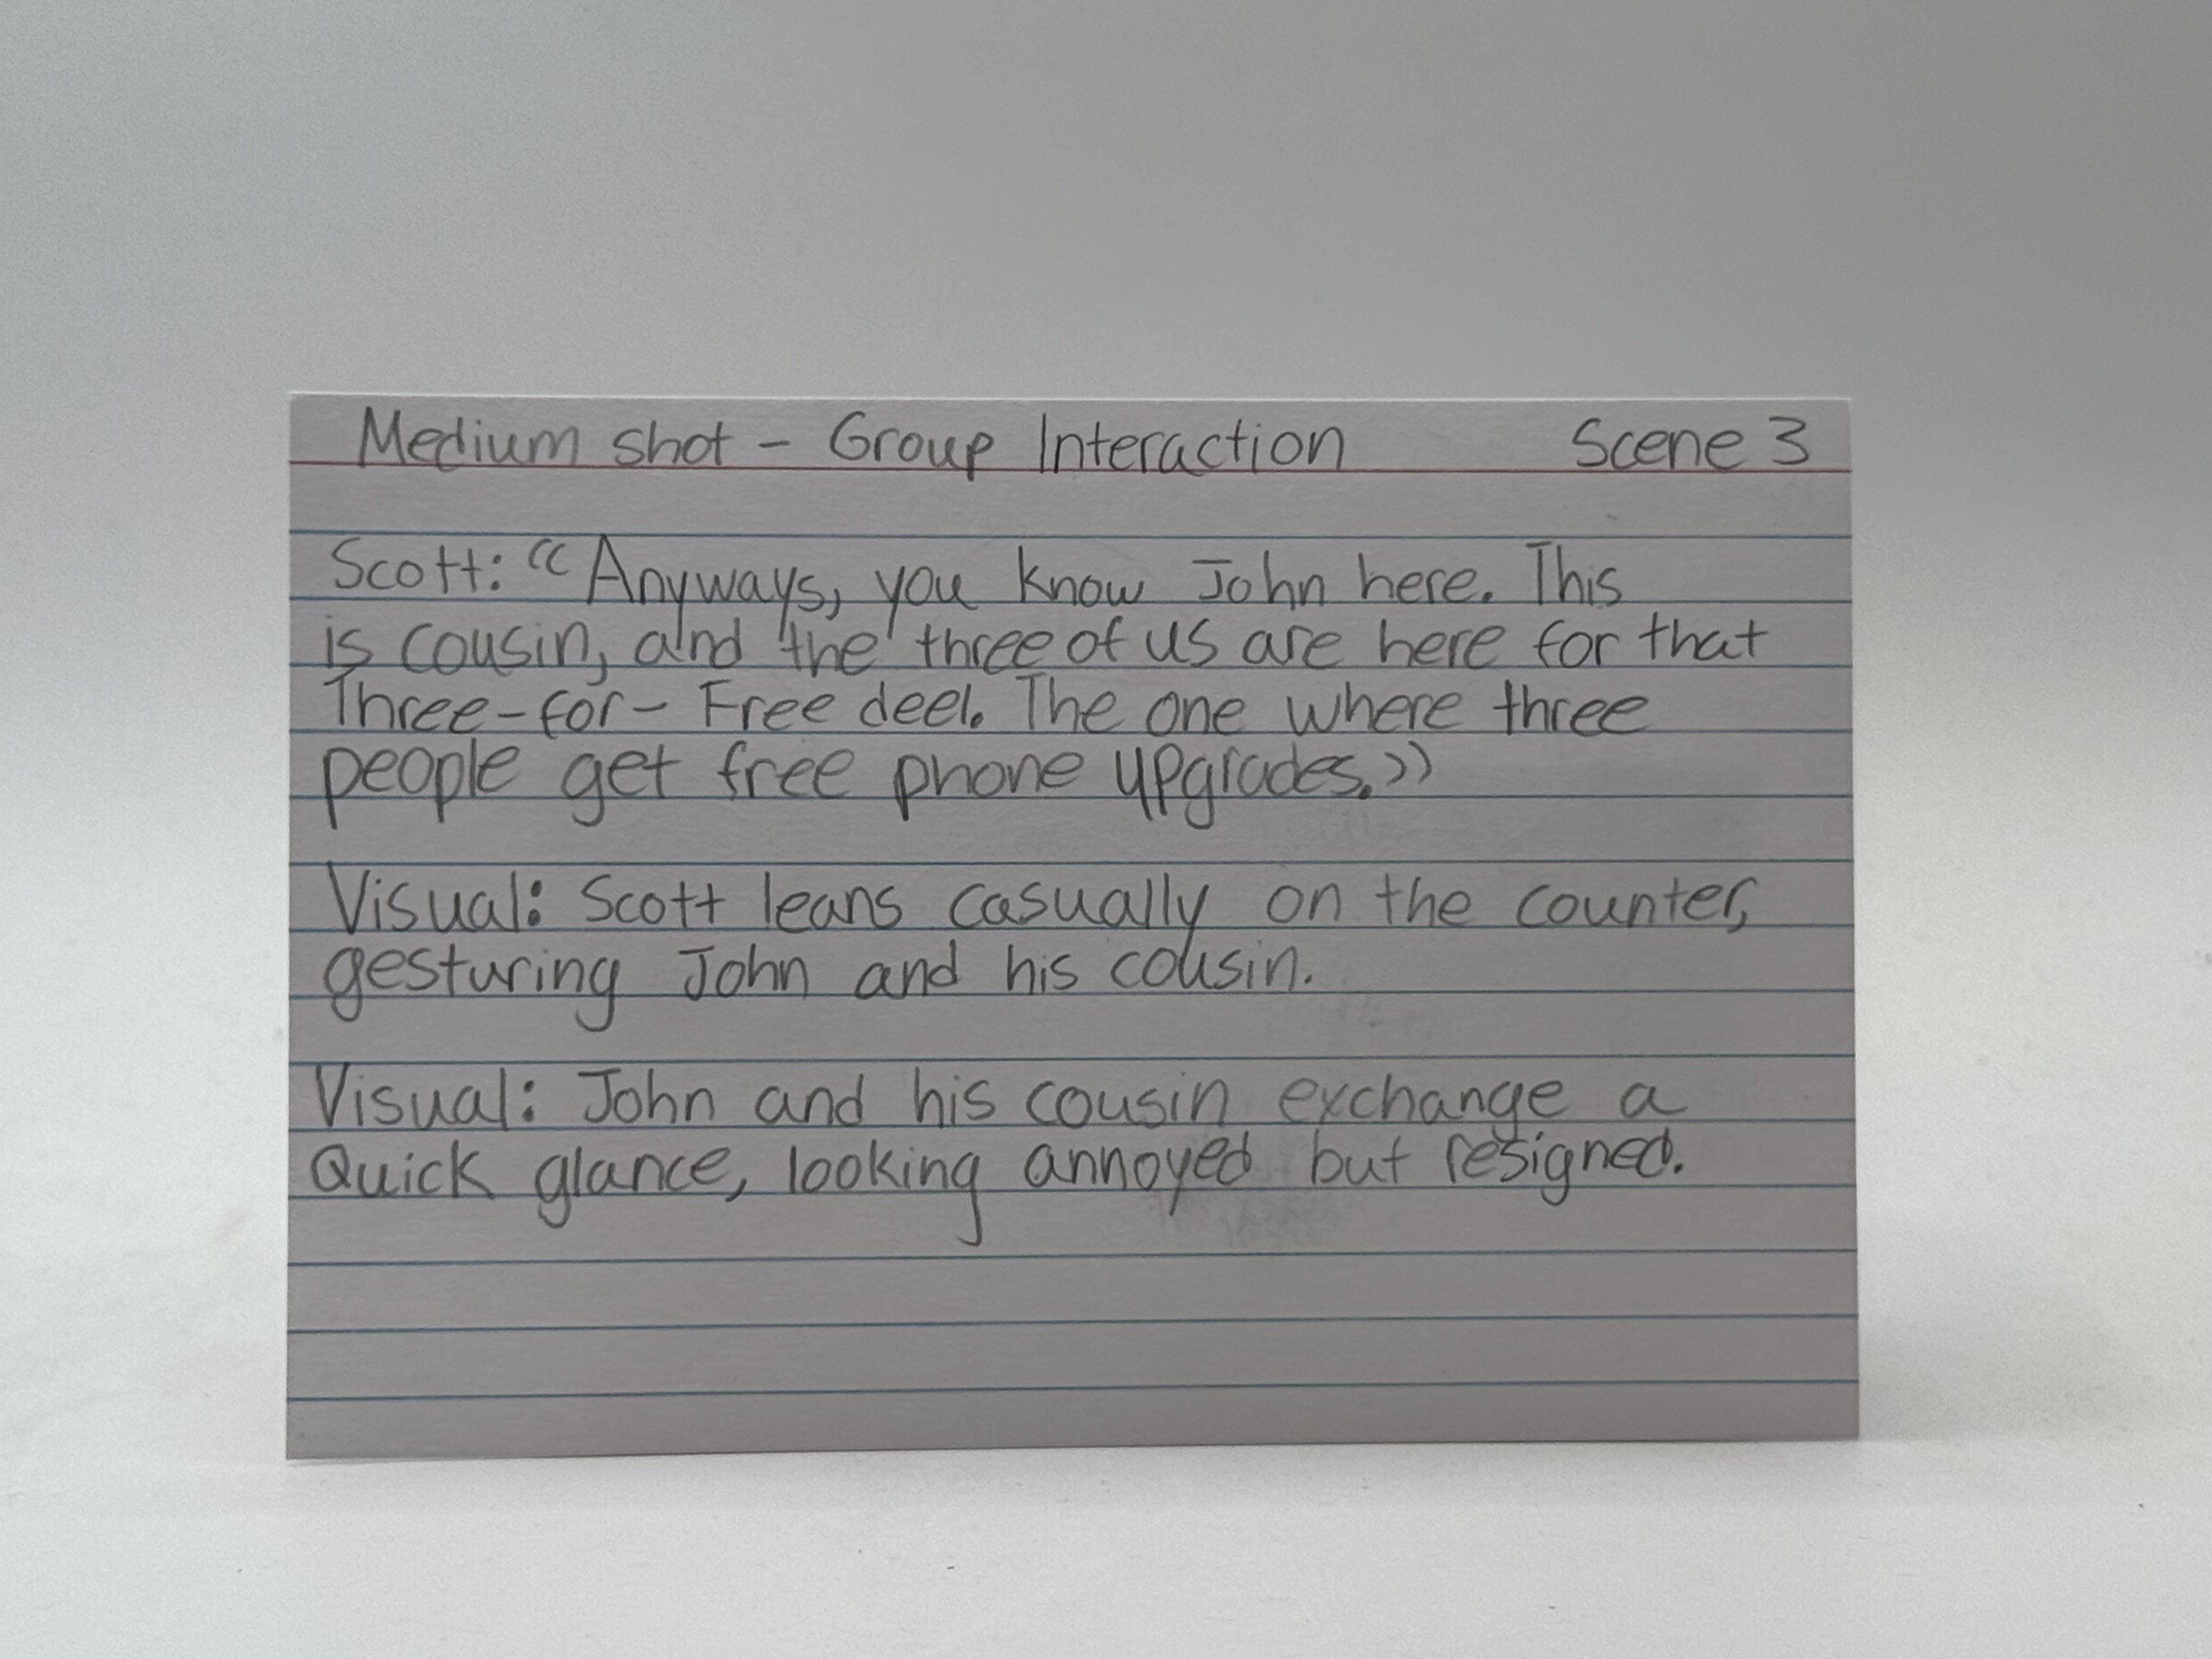 Medium shot - Group Interaction Scene 3
Scott: "Anyways, you know John here. This
is cousin, and the three of us are here for that
Three-for-Free deel. The one where three
people get free phone upgrades."
Visual: Scott leans casually on the counter,
gesturing John and his cousin.
Visual: John and his cousin exchange a
Quick glance, looking annoyed but resigned.